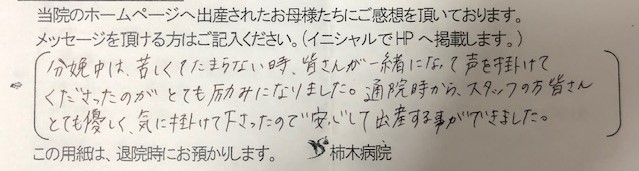 当院のホームページへ出産されたお母様たちにご感想を頂いております。
メッセージを頂ける方はご記入ください。(イニシャルでHPへ掲載します。)
分娩中は、苦しくてたまらない時、皆さんが一緒になって声を掛けて
くださったのがとても励みになりました。通院時から、スタッフの方皆さん
とても優しく、気に掛けて下さったので安心して出産する事ができました。
この用紙は、退院時にお預かりします。 柿木病院